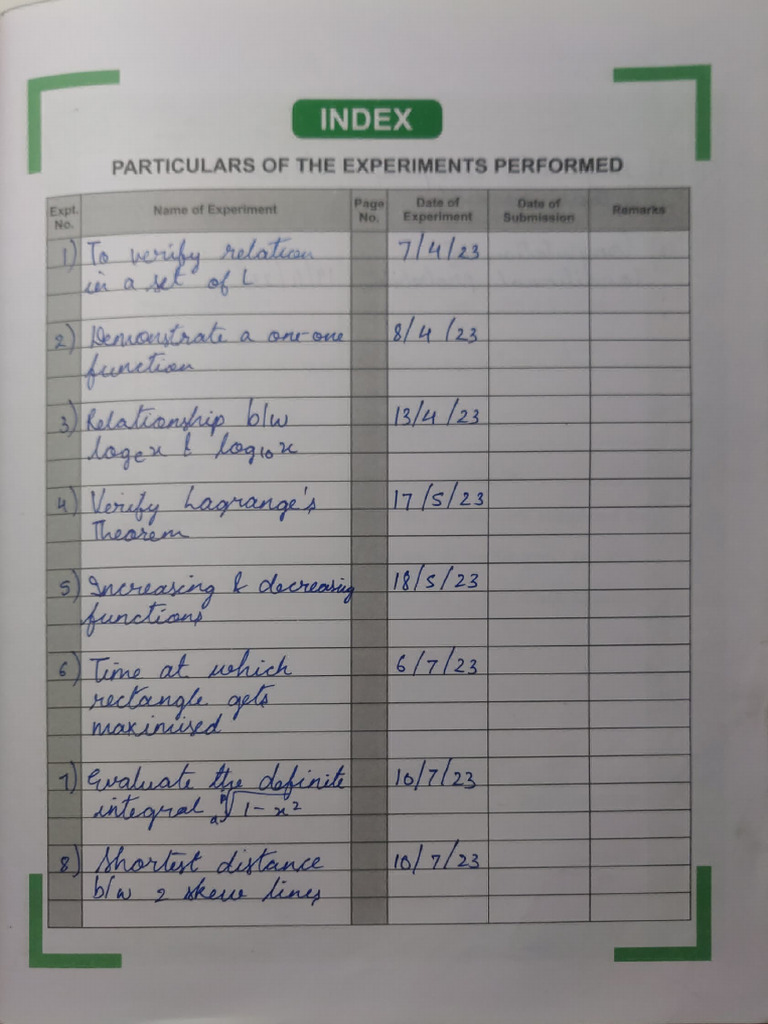 INDEX
PARTICULARS OF THE EXPERIMENTS PERFORMED
Expt. No. Name of Experiment Page No. Date of Experiment Date of Submission Remarks
1) To verify relation 7/4/23
in a set of L
2) Demonstrate a one-one 8/4/23
function
3) Relationship b/w 13/4/23
logex & log10x
4) Verify Lagrange's 17/5/23
Theorem
5) Increasing & decreasing 18/5/23
functions
6) Time at which 6/7/23
rectangle gets
maximised
7) Evaluate the definite 10/7/23
integral √1-x²
8) Shortest distance 10/7/23
b/w 2 skew lines